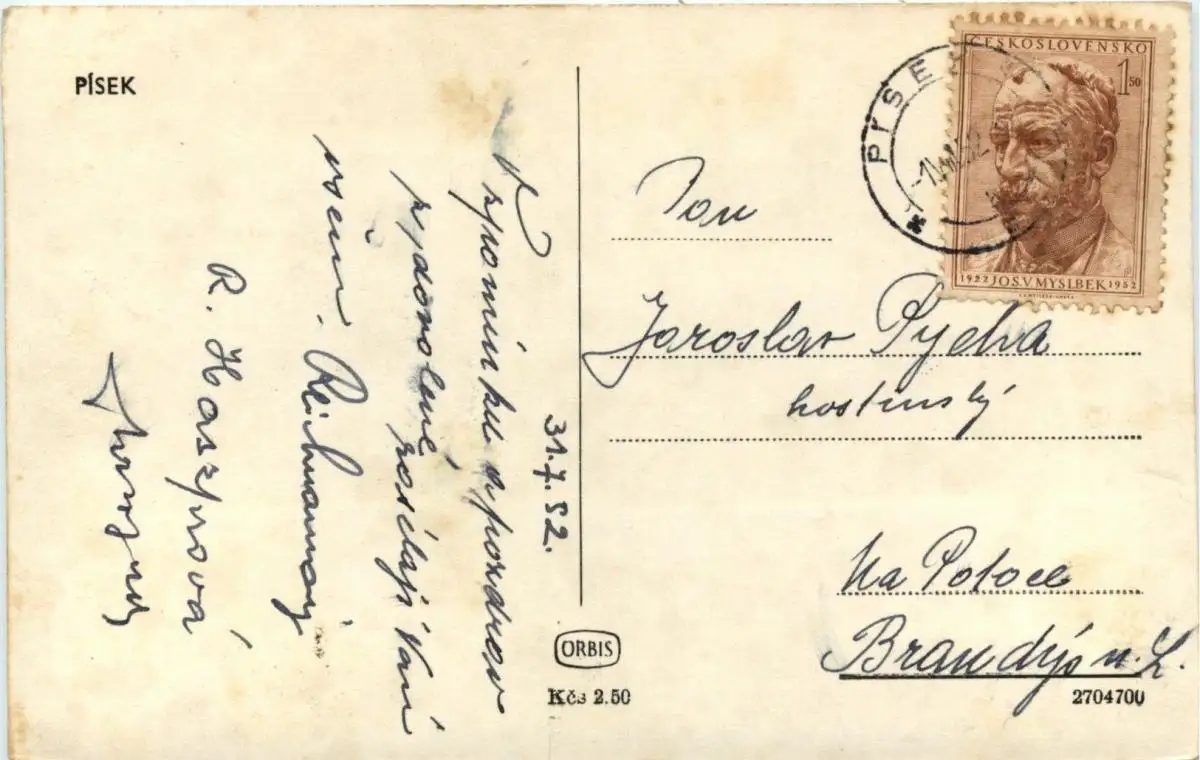 PÍSEK
31.7.52.
Vzpomínku a pozdrav
z dovolené zasílají Vám
všem. Reichmannovi
R. Kaszprová
ČESKOSLOVENSKO
1 50
1922 JOS.V.MYSLBEK 1952
PÍSEK
Pan
Jaroslav Pycha
hostinský
Na Potoce
Brandýs n. L.
ORBIS
Kčs 2.50
2704700